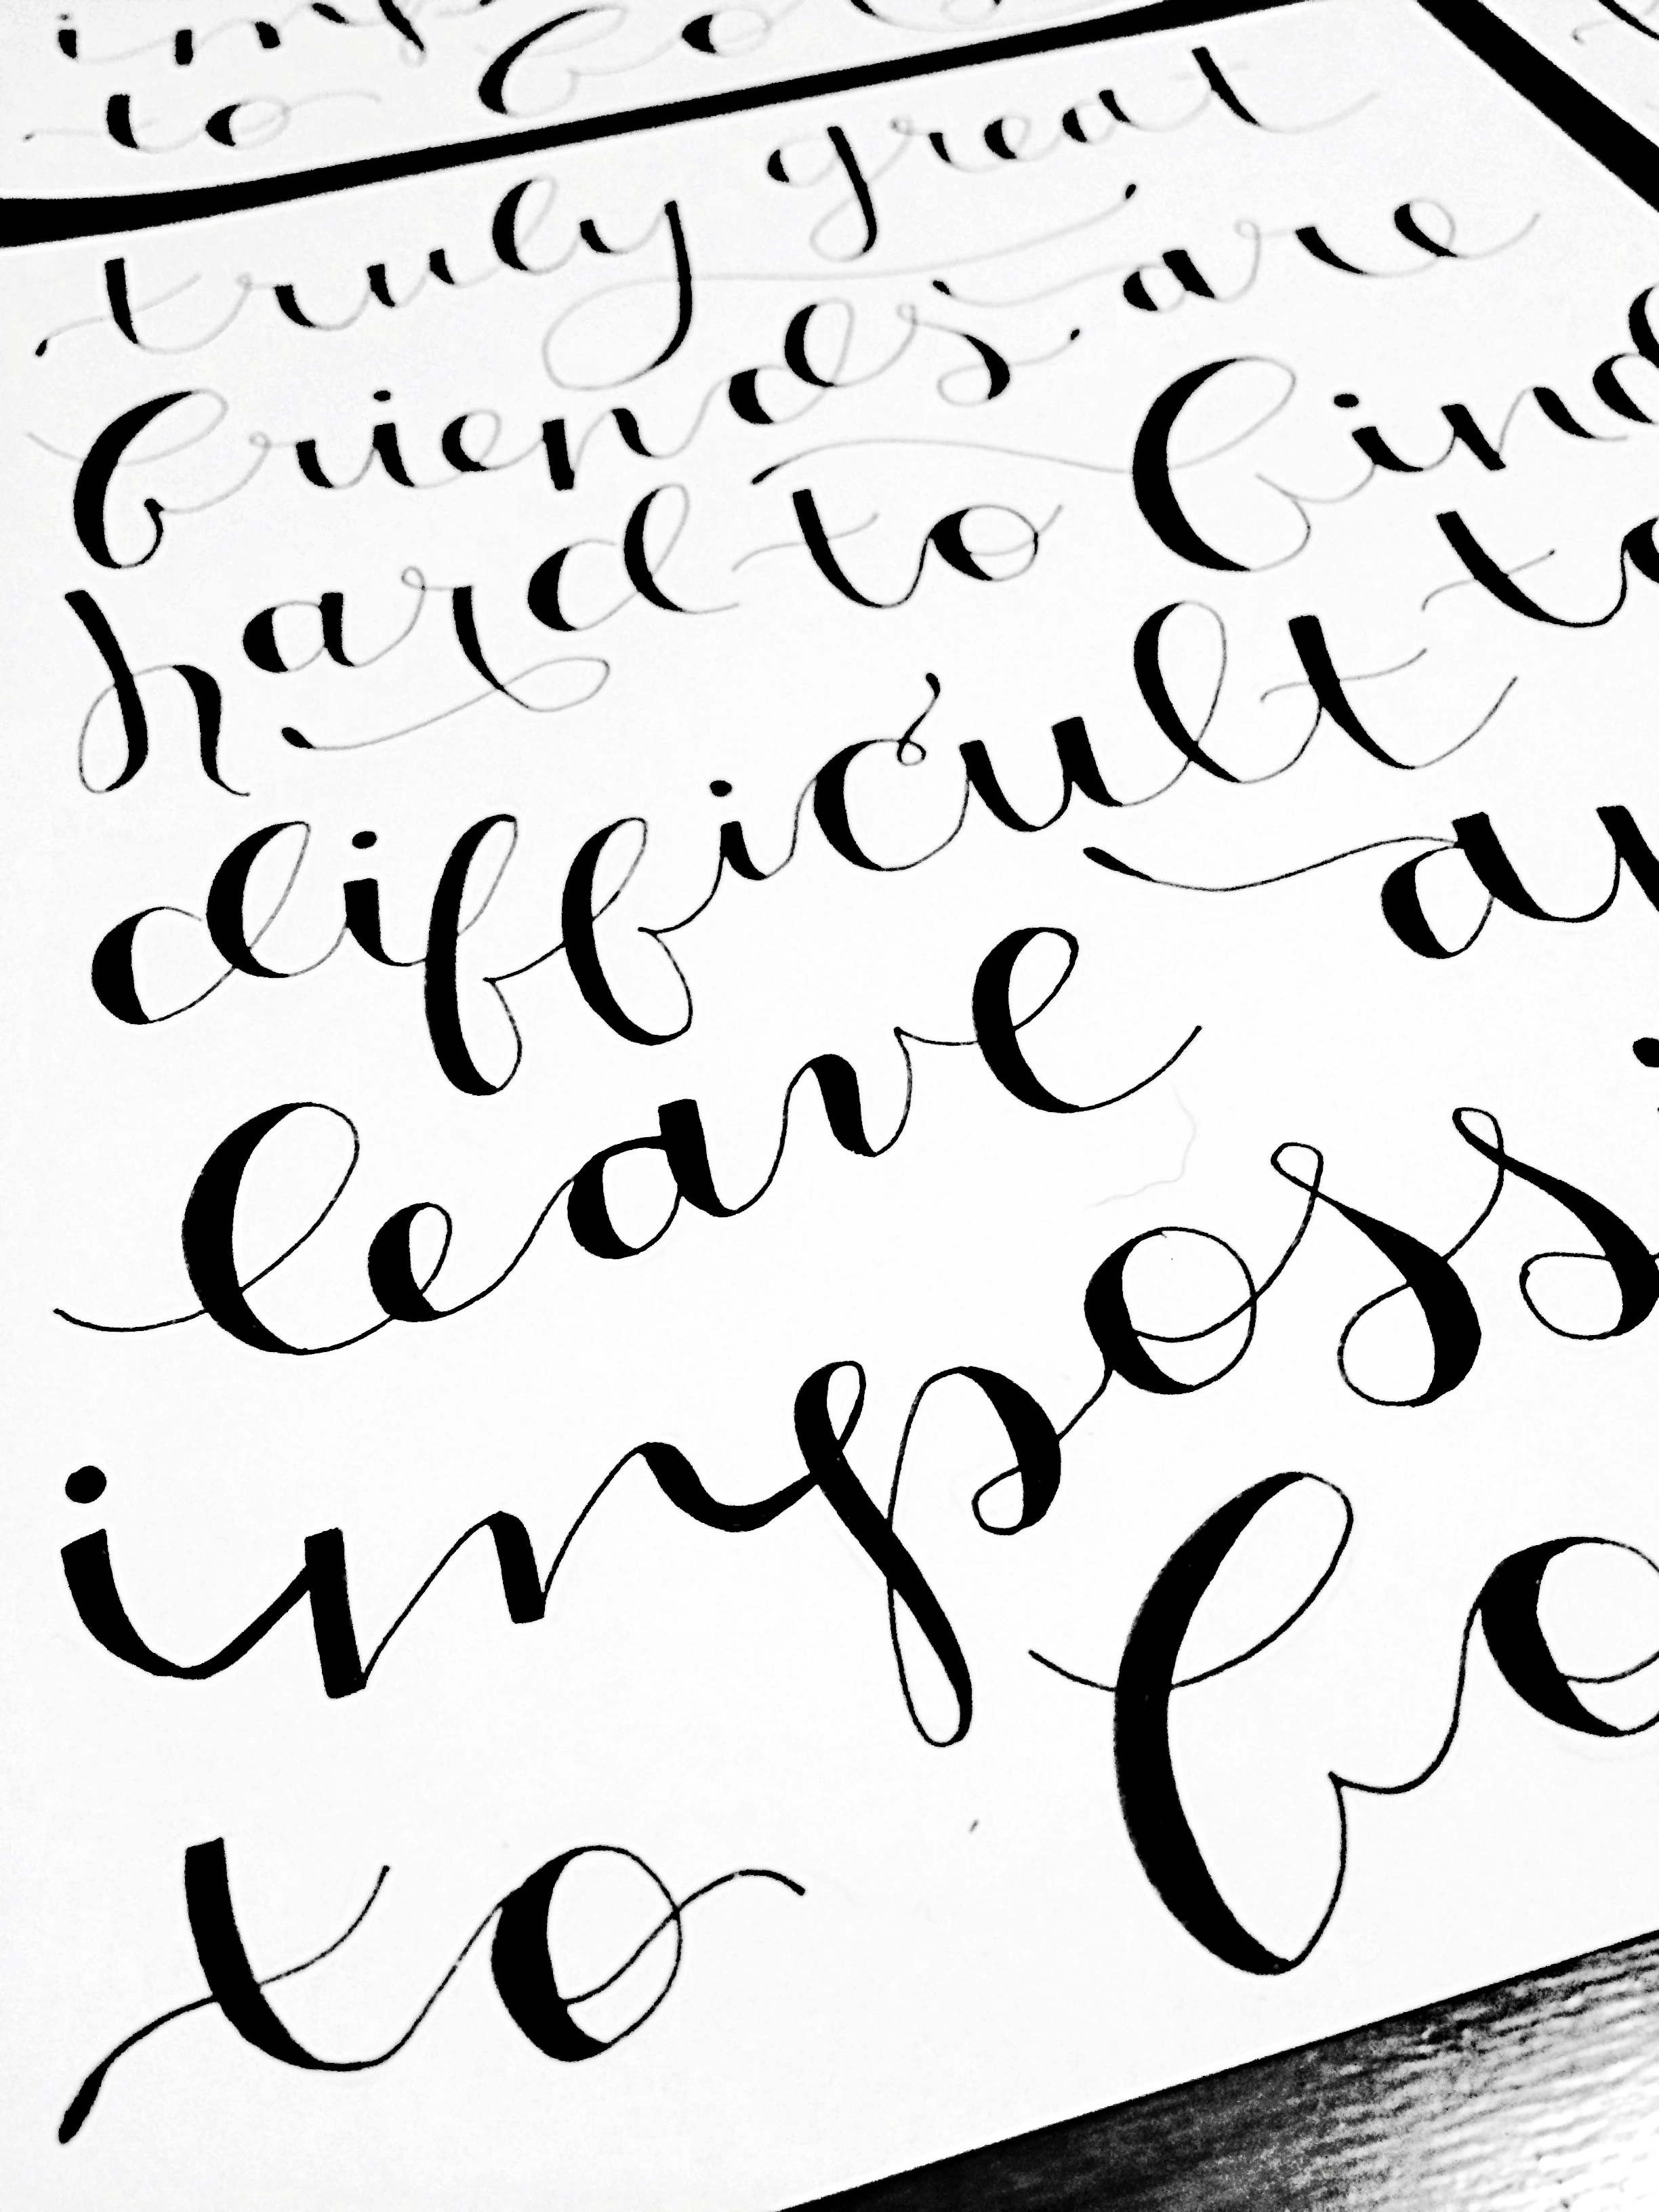 imp
to fo
truly great
friends are
hard to find
difficult to
leave an
imposs
to fo